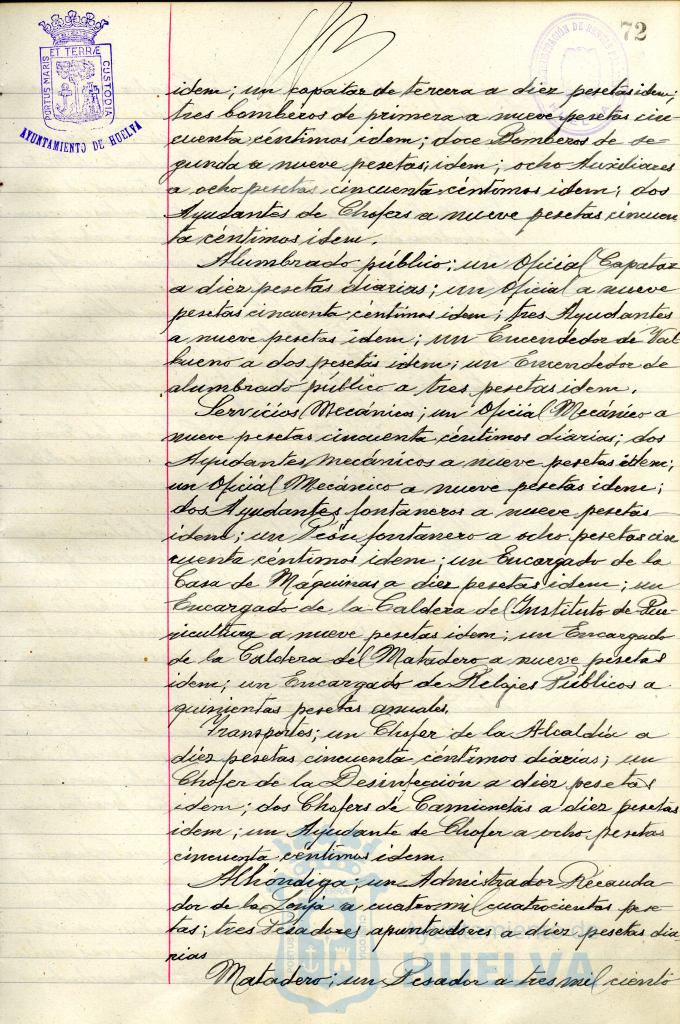 72
PORTUS MARIS ET TERRÆ CUSTODIA
AYUNTAMIENTO DE HUELVA
idem; un capataz de tercera a diez pesetas idem;
tres bomberos de primera a nueve pesetas cin-
cuenta céntimos idem; doce Bomberos de se-
gunda a nueve pesetas idem; ocho Auxiliares
a ocho pesetas cincuenta céntimos idem; dos
Ayudantes de Chofers a nueve pesetas cincuen
ta céntimos idem.
Alumbrado público; un Oficial Capataz
a diez pesetas diarias; un Oficial a nueve
pesetas cincuenta céntimos idem; tres Ayudantes
a nueve pesetas idem; un Encendedor de Val
bueno a dos pesetas idem; un Encendedor de
alumbrado público a tres pesetas idem.
Servicios Mecánicos; un Oficial Mecánico a
nueve pesetas cincuenta céntimos diarias; dos
Ayudantes mecánicos a nueve pesetas idem;
un Oficial Mecánico a nueve pesetas idem;
dos Ayudantes fontaneros a nueve pesetas
idem; un Peón fontanero a ocho pesetas cin
cuenta céntimos idem; un Encargado de la
Casa de Máquinas a diez pesetas idem; un
Encargado de la Caldera del Instituto de Pue
ricultura a nueve pesetas idem; un Encargado
de la Caldera del Matadero a nueve pesetas
idem; un Encargado de Relojes Públicos a
quinientas pesetas anuales.
Transportes; un Chofer de la Alcaldía a
diez pesetas cincuenta céntimos diarias; un
Chofer de la Desinfección a diez pesetas
idem; dos Chofers de Camionetas a diez pesetas
idem; un Ayudante de Chofer a ocho pesetas
cincuenta céntimos idem.
Alhóndiga; un Admistrador Recauda-
dor de la Lonja a cuatro mil cuatrocientas pese-
tas; tres Pesadores apuntadores a diez pesetas dia-
rias
Matadero; un Pesador a tres mil ciento
Ayuntamiento de
HUELVA